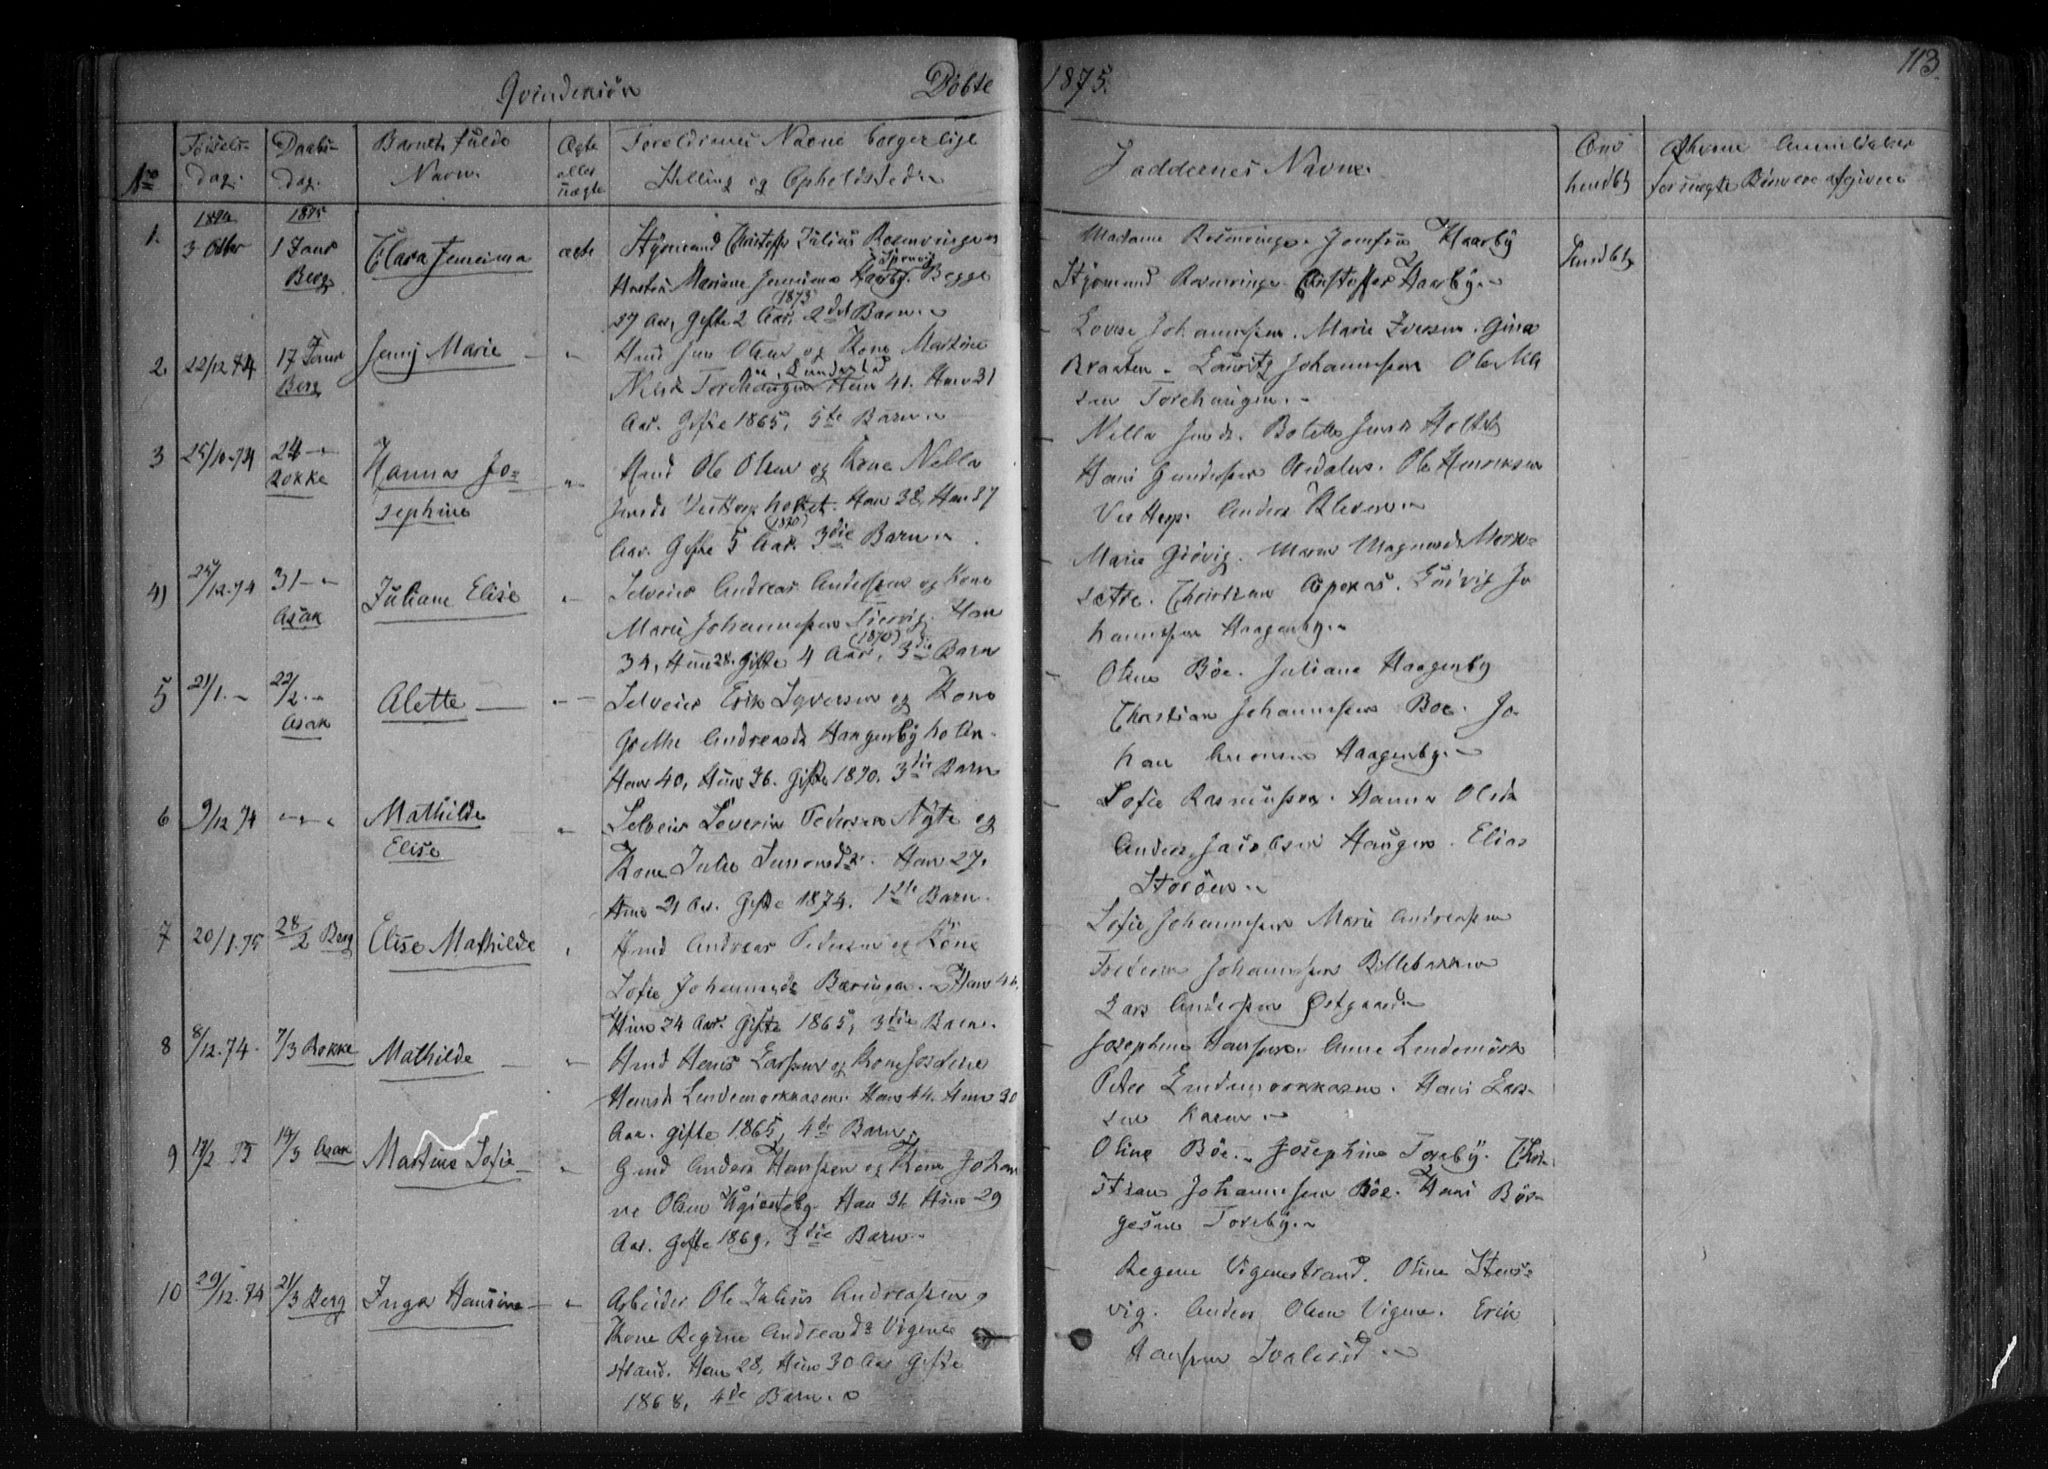 113.
Qvindekiön Döbte 1875.
No
Födsels-
dag.
Daabs-
dag.
Barnets fulde
Navn.
Ægte
eller
uægte
Foreldrenes Navne borgerlige
Stilling og Opholdssted
Faddernes Navne.
Om
hendby
for uægte Börn ere afgivne
1.
1874
3 Octbr
1875
1 Janr
Berg
Clara Jemima
ægte
Styrmand Christoffr Julius Rosenvinge og
Hustru Mariane Jemima Haarby. Begge
27 Aar, Gifte 2 Aar, (1873) 2det Barn.
Madame Rosenvinge. Jomfru Haarby
Styrmand Rosenvinge. Christoffer Haarby.
2.
22/12 74
17 Janr
Berg
Jenny Marie
Hmd Jens Olsen og Kone Martine
Nilsd. Torehaugen Han 41. Hun 31
Aar. Gifte 1865, 5te Barn.
Lovise Johannessen. Marie Iversen. Gina
Braaten. Lauritz Johannessen Ole Nil
sen Torehaugen.
3
25/10.74
24
Rokke
Hanna Jo-
sephine
Hmd Ole Olsen og Kone Nella
Jensd. Vestthorpholtet. Han 38, Hun 37
Aar. Gifte 5 Aar. (1870) 3die Barn.
Nella Jensd. Bolette Jensd. Holtet
Hans Gundersen. Ole Henriksen
Vesttorp. Anders Kleven.
4)
25/12.74
31
Asak
Juliane Elise
Selveier Andreas Anderssen og Kone
Marie Johannessen Han
34, Hun 28. Gifte 4 Aar, (1870) 3die Barn
Marie Giövig. Maren Magnusd.
sætre. Christian Aspekas. Ludvig Jo
hannessen Haagenby.
5
21/1.
22/2.
Asak
Alette
Selveier Erik Syversen og Kone
Grethe Andreasd. Haagenbyholtn.
Han 40, Hun 36. Gifte 1870. 3die Barn
Oline Böe. Juliane Haagenby
Christian Johannessen Boe. Jo-
han Haagenby.
6
9/12 74
Mathilde
Elise
Selveier Severin Pedersen Nyte og
Kone Julie Simonsd. Han 27.
Hun 21 Aar. Gifte 1874. 1ste Barn.
Sofie Rasmussen. Hanna Olsd.
Anders Jacobsen Haugen. Elias
Storöen.
7
20/1.75
28/2 Berg
Elise Mathilde
Hmd Andreas Pedersen og Kone
Sofie Johannesd. Bæringen. Han 41.
Hun 34 Aar. Gifte 1865, 3die Barn.
Sofie Johannessen Marie Andreassen
Johannessen Billebakken
Lars Anderssen Östgaard
8
8/12.74.
7/3 Rokke
Mathilde
Hmd Hans Larssen og Kone Josefine
Hansd. Lundemorkkasen. Han 44. Hun 30
Aar. gifte 1865, 4de Barn.
Josephine Hanssen. Anne Lundemörk
Peter Lundemorkkasen. Hans Lars-
sen Kasen
9
17/2 75
14/3 Asak
Martine Sofie
Gmd Anders Hanssen og Kone Johan
ne Olsen Han 31 Hun 29
Aar. Gifte 1869, 3die Barn.
Oline Böe. Josephine Toreby. Chri-
stian Johannessen Böe. Hans Bör-
gesen Toreby.
10
29/12.74
21/3 Berg
Inga Hansine
Arbeider Ole Julius Andreassen og
Kone Regine Andreasd. Vigene
strand. Han 28, Hun 30 Aar Gifte
1868, 4de Barn.
Regine Vigenestrand. Oline Stens-
vig. Anders Olsen Vigene. Erik
Hanssen